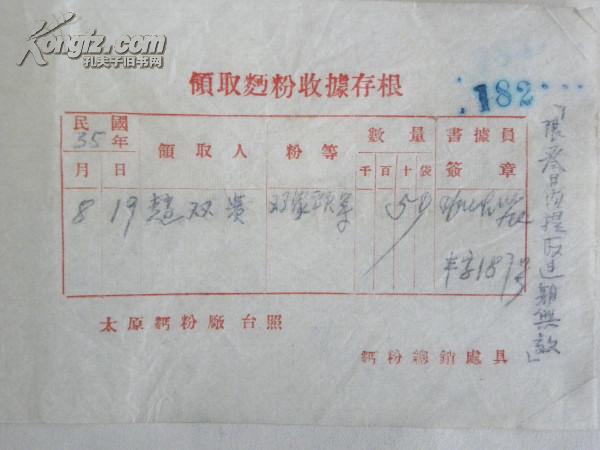 Kongfz.com
孔夫子旧书网
領取麵粉收據存根
182
民國35年
月 日 領取人 粉等 數量 千百十袋 書據員簽章
8 19 双 50
字187号
「限叁日內提取过期無效」
太原麵粉廠台照
麵粉總銷處具